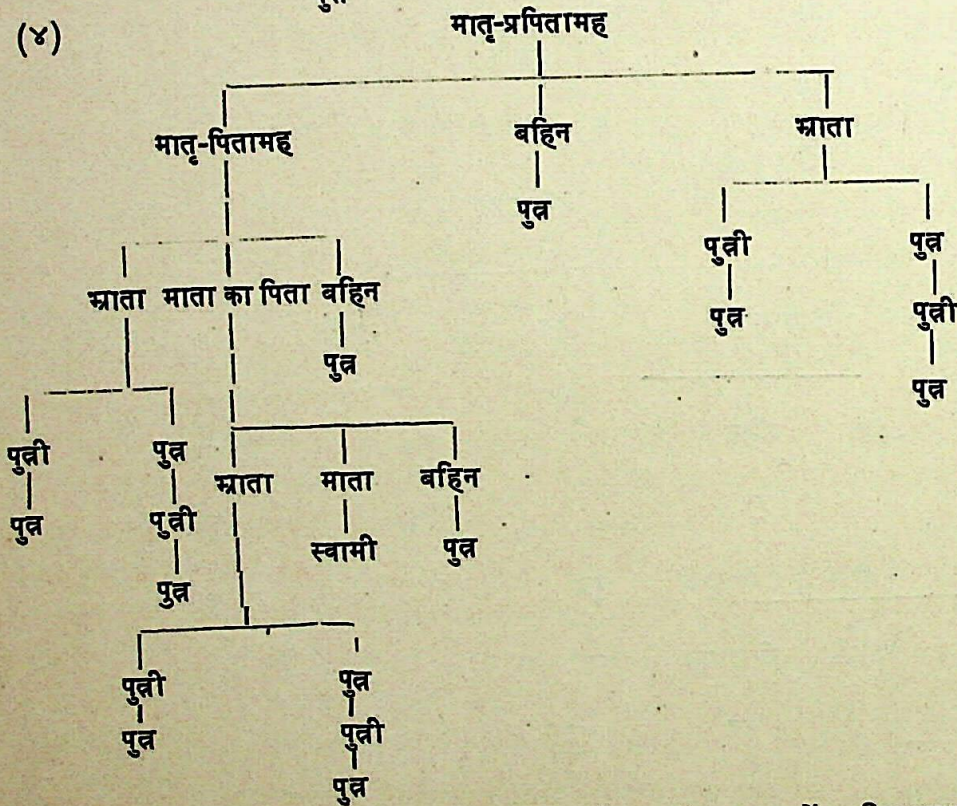 (४)
मातृ-प्रपितामह
मातृ-पितामह बहिन भ्राता
पुत्र
पुत्री पुत्र
भ्राता माता का पिता बहिन
पुत्र पुत्री
पुत्र
पुत्र
पुत्री पुत्र भ्राता माता बहिन
पुत्र पुत्री स्वामी पुत्र
पुत्र
पुत्री पुत्र
पुत्र पुत्री
पुत्र